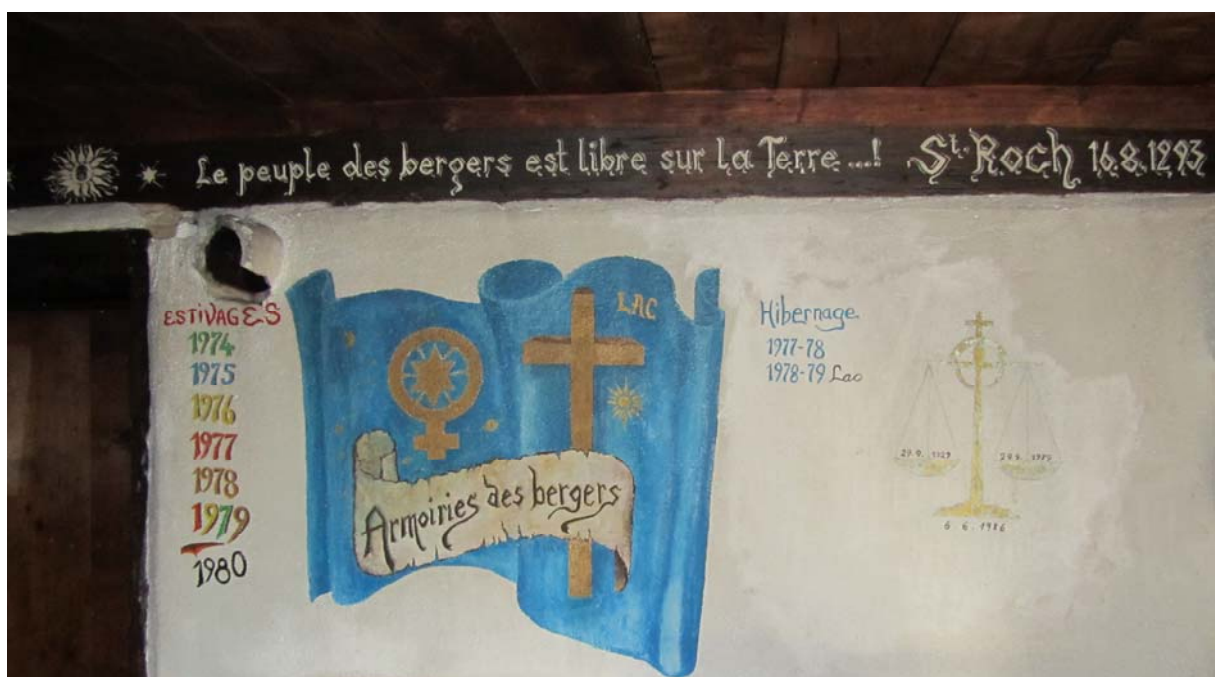 Le peuple des bergers est libre sur la Terre...! St. Roch 16.8.1293
ESTIVAGES
1974
1975
1976
1977
1978
1979
1980
LAC
Armoiries des bergers
Hibernage
1977-78
1978-79 Lac
29.9.1929
6.6.1986